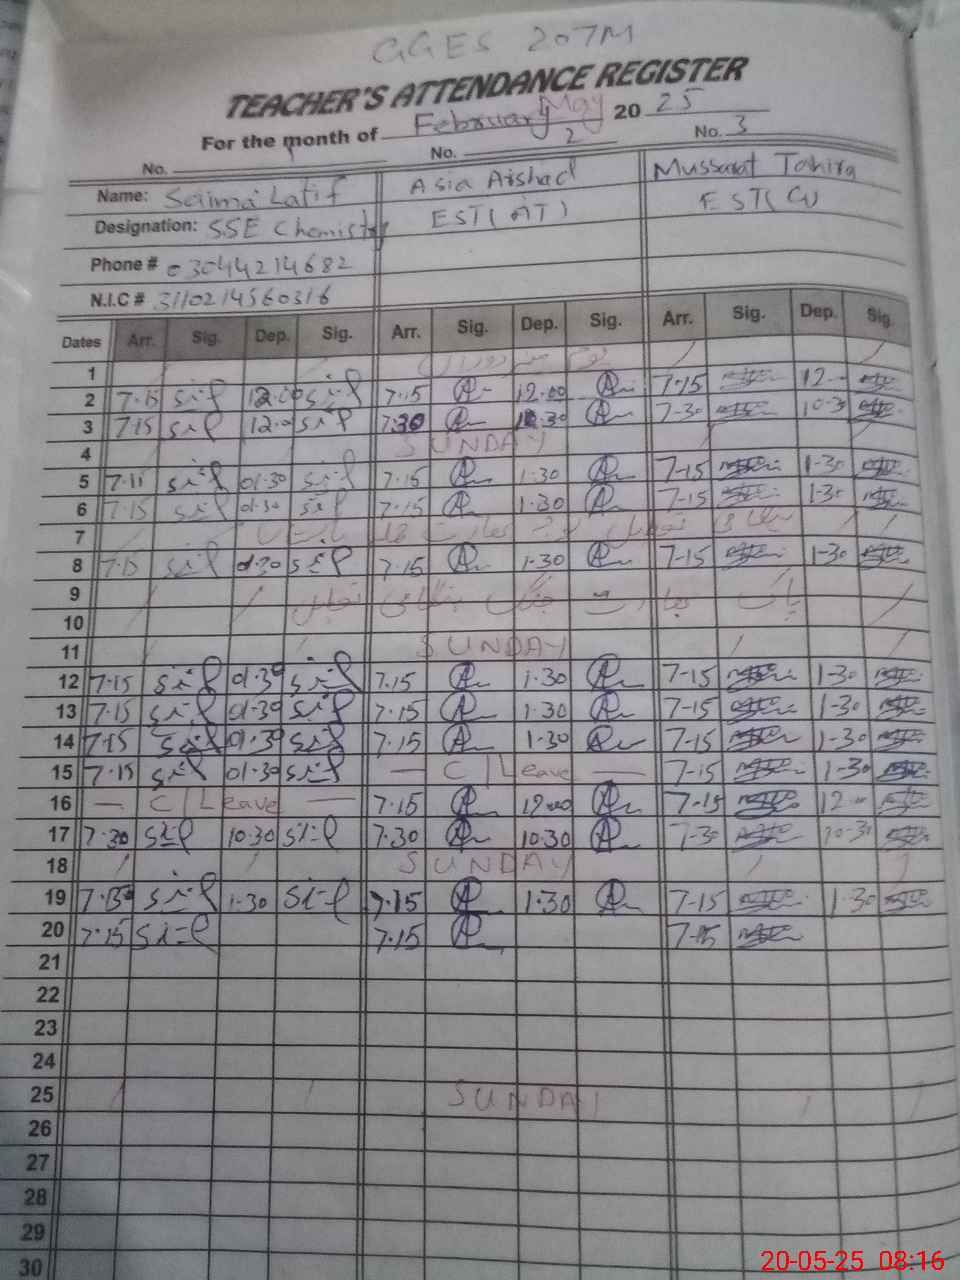 GGES 207M
TEACHER'S ATTENDANCE REGISTER
For the month of February May 20 25
No. 1 No. 2 No. 3
Name: Saima Latif Asia Arshad Mussarat Tahira
Designation: SSE Chemistry EST(AT) EST(G)
Phone # 03044214682
N.I.C # 3110214560316
Dates Arr. Sig. Dep. Sig. Arr. Sig. Dep. Sig. Arr. Sig. Dep. Sig.
1
2 7.15 12.00 7.15 12.00 7-15 12
3 7.15 12.0 7.30 10.30 7-30 10-30
4 SUNDAY
5 7.15 01.30 7.15 1.30 7-15 1-30
6 7.15 01.30 7.15 1.30 7-15 1-30
7
8 7.15 01.30 7.15 1.30 7-15 1-30
9
10
11 SUNDAY
12 7.15 01.30 7.15 1.30 7-15 1-30
13 7.15 01.30 7.15 1.30 7-15 1-30
14 7.15 01.30 7.15 1.30 7-15 1-30
15 7.15 01.30 — C/Leave — 7-15 1-30
16 — C/Leave — 7.15 12.00 7-15 12
17 7.30 10.30 7.30 10.30 7-30 10-30
18 SUNDAY
19 7.15 1.30 7.15 1.30 7-15 1-30
20 7.15 7.15 7-15
21
22
23
24
25 SUNDAY
26
27
28
29
30
20-05-25 08:16